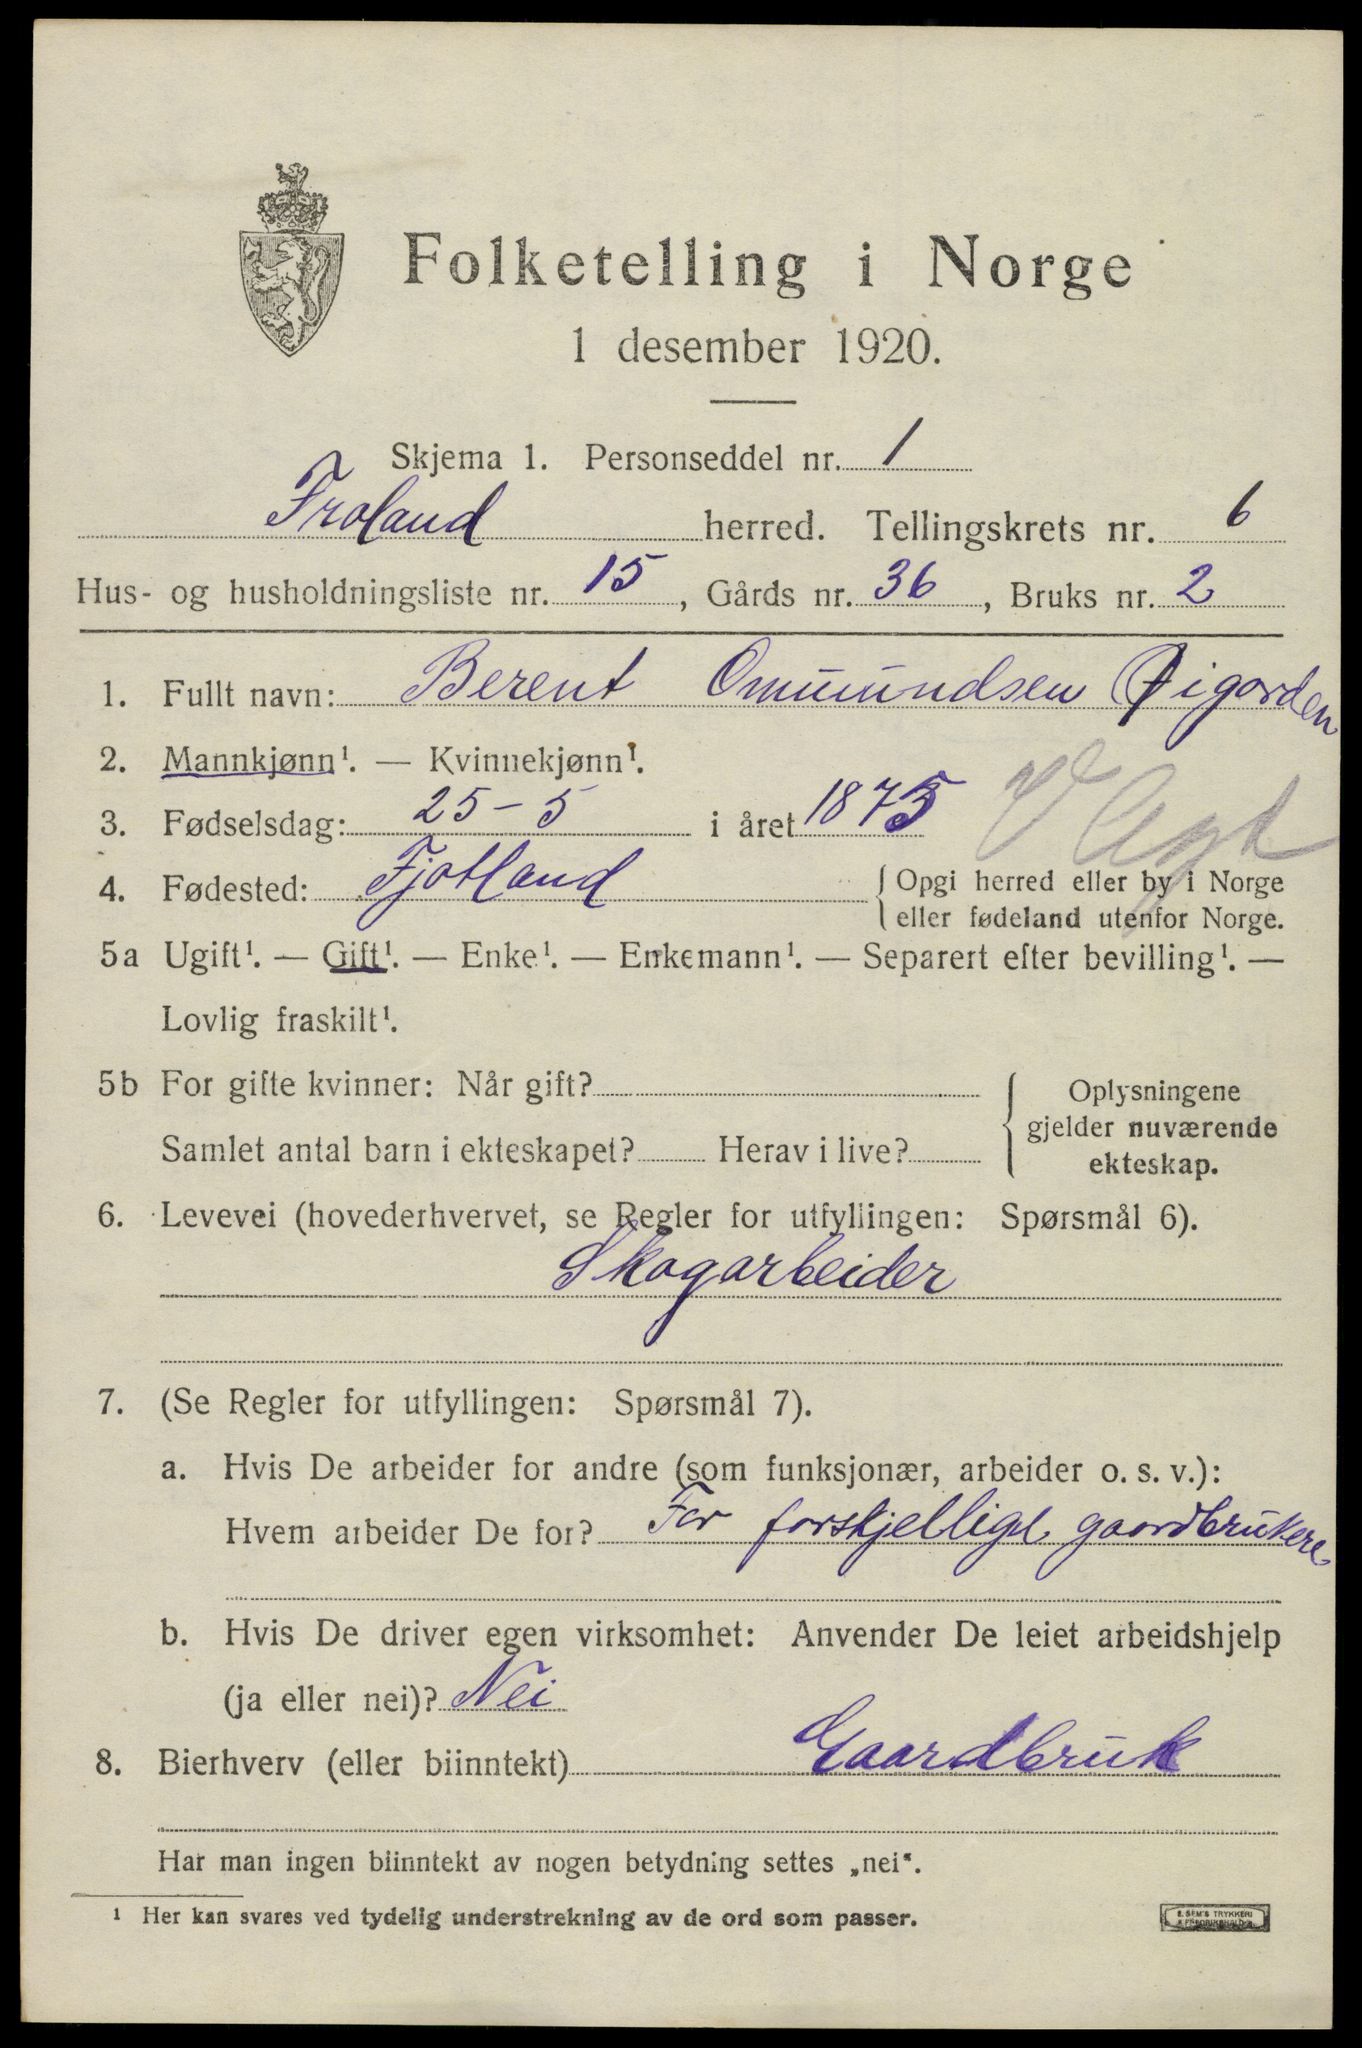 Folketelling i Norge
1 desember 1920.
Skjema 1. Personseddel nr. 1
Froland herred. Tellingskrets nr. 6
Hus- og husholdningsliste nr. 15, Gårds nr. 36, Bruks nr. 2
1. Fullt navn: Berent Ommundsen Øigarden
2. Mannkjønn¹. — Kvinnekjønn¹.
3. Fødselsdag: 25-5 i året 1875
V Agd
4. Fødested: Fjotland { Opgi herred eller by i Norge
eller fødeland utenfor Norge.
5a Ugift¹. — Gift¹. — Enke¹. — Enkemann¹. — Separert efter bevilling¹. —
Lovlig fraskilt¹.
5b For gifte kvinner: Når gift? { Oplysningene
gjelder nuværende
Samlet antal barn i ekteskapet? Herav i live? ekteskap.
6. Levevei (hovederhvervet, se Regler for utfyllingen: Spørsmål 6).
Skogarbeider
7. (Se Regler for utfyllingen: Spørsmål 7).
a. Hvis De arbeider for andre (som funksjonær, arbeider o. s. v.):
Hvem arbeider De for? For forskjellige gaardbrukere
b. Hvis De driver egen virksomhet: Anvender De leiet arbeidshjelp
(ja eller nei)? Nei
8. Bierhverv (eller biinntekt) Gaardbruk
Har man ingen biinntekt av nogen betydning settes „nei“.
¹ Her kan svares ved tydelig understrekning av de ord som passer.
E. SEM'S TRYKKERI
FREDRIKSHALD